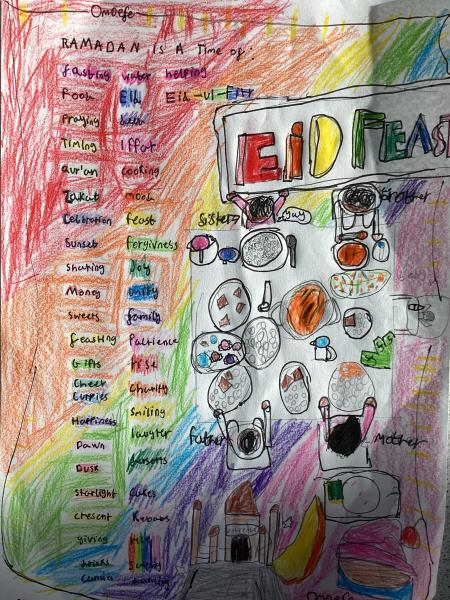 Omoefe
RAMADAN is A Time of:
fasting water helping
Food Eid Eid-ul-Fitr
Praying
Timing Iftar
Qur'an cooking
Zakat moon
Celebration feast
Sunset forgivness
Sharing Joy
Money unity
Sweets family
feasting Patience
Gifts
Cheek Charity
Curries
Happiness Smiling
Dawn layter
Dusk
Starlight cakes
cresent Kebabs
giving
drinks
EiD FEAST
Sister Yay
Brother
Father
Mother